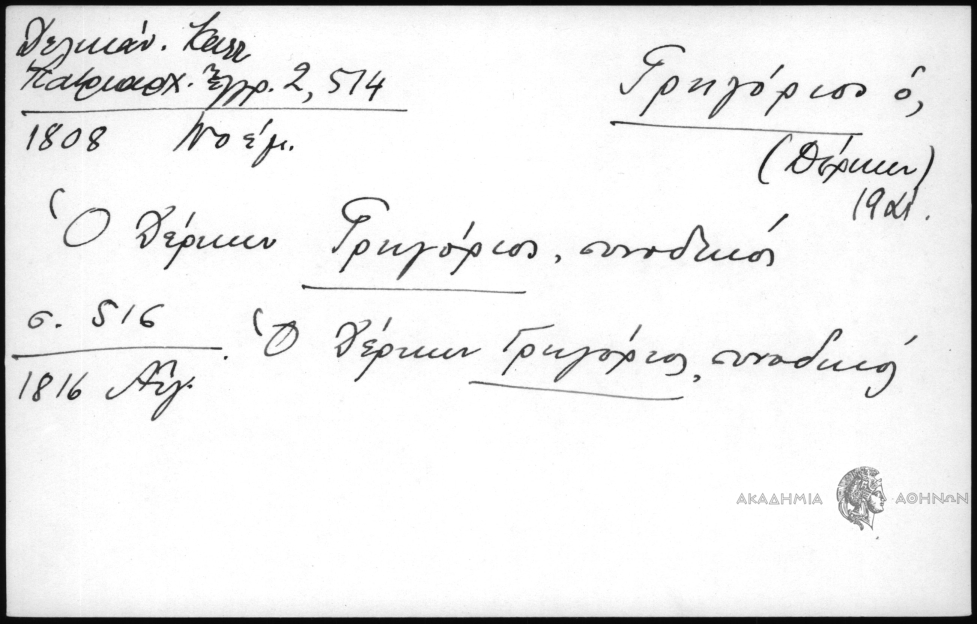 Δελικάν. Καλλ
Πατριαρχ. Ἔγγρ. 2, 514
1808 Νοέμ.
Γρηγόριος ὁ,
(Δέρκων)
19αι.
Ὁ Δέρκων Γρηγόριος, συνοδικός
σ. 516
1816 Αὔγ.
Ὁ Δέρκων Γρηγόριος, συνοδικός
ΑΚΑΔΗΜΙΑ ΑΘΗΝΩΝ